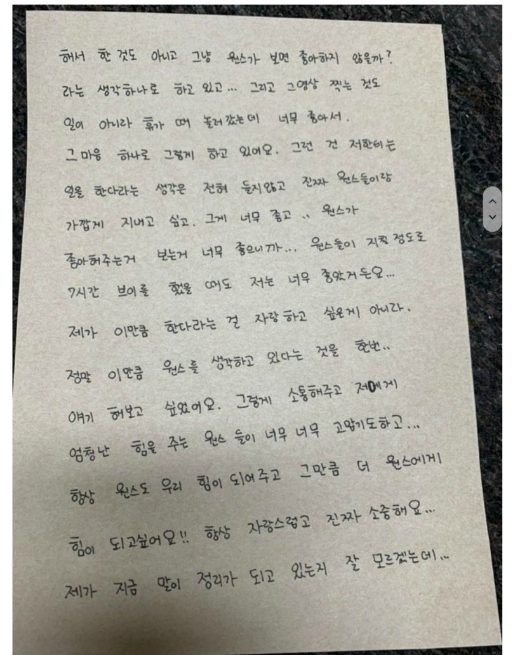 해서 한 것도 아니고 그냥 원스가 보면 좋아하지 않을까?
라는 생각하나로 하고 있고... 그리고 그영상 찍는 것도
일이 아니라 휴가 때 놀러갔는데 너무 좋아서.
그 마음 하나로 그렇게 하고 있어요. 그런 건 저한테는
일을 한다라는 생각은 전혀 들지않고 진짜 원스들이랑
가깝게 지내고 싶고. 그게 너무 좋고.. 원스가
좋아해주는거 보는거 너무 좋으니까... 원스들이 지칠 정도로
7시간 브이를 했을 때도 저는 너무 좋았거든요...
제가 이만큼 한다라는 걸 자랑하고 싶은게 아니라.
정말 이만큼 원스를 생각하고 있다는 것을 한번..
얘기 해보고 싶었어요. 그렇게 소통해주고 저에게
엄청난 힘을 주는 원스 들이 너무 너무 고맙기도하고...
항상 원스도 우리 힘이 되어주고 그만큼 더 원스에게
힘이 되고싶어요!! 항상 자랑스럽고 진짜 소중해요...
제가 지금 말이 정리가 되고 있는지 잘 모르겠는데..